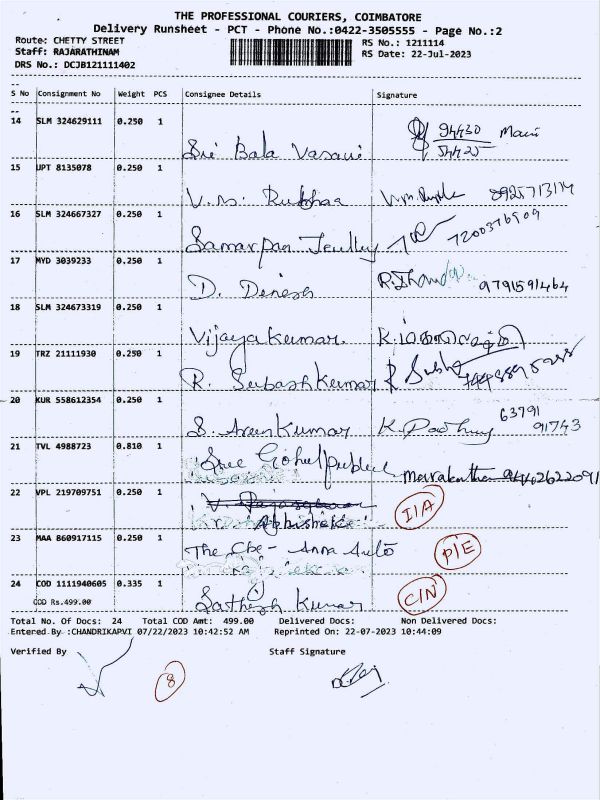 THE PROFESSIONAL COURIERS, COIMBATORE
Delivery Runsheet - PCT - Phone No.:0422-3505555 - Page No.:2
Route: CHETTY STREET
RS No.: 1211114
Staff: RAJARATHINAM
RS Date: 22-Jul-2023
DRS No.: DCJB121111402
S No Consignment No Weight PCS Consignee Details Signature
14 SLM 324629111 0.250 1
Sri Bala Vasavi 94430 54425 Mani
15 UPT 8135078 0.250 1
V.m.
16 SLM 324667327 0.250 1
Samarpan 7200376909
17 MYD 3039233 0.250 1
D. Dinesh 9791591464
18 SLM 324673319 0.250 1
Vijayakumar.
19 TRZ 21111930 0.250 1
R. Subash Kumar
20 KUR 558612354 0.250 1
S. Arun Kumar K. 63791 91743
21 TVL 4988723 0.810 1
Sree Gokul
22 VPL 219709751 0.250 1
Abhishek I/A
23 MAA 860917115 0.250 1
The Cbe - Anna Auto P/E
24 COD 1111940605 0.335 1
COD Rs.499.00
Sathish Kumar C/N
Total No. Of Docs: 24 Total COD Amt: 499.00 Delivered Docs: Non Delivered Docs:
Entered By :CHANDRIKAPVI 07/22/2023 10:42:52 AM Reprinted On: 22-07-2023 10:44:09
Verified By Staff Signature
8